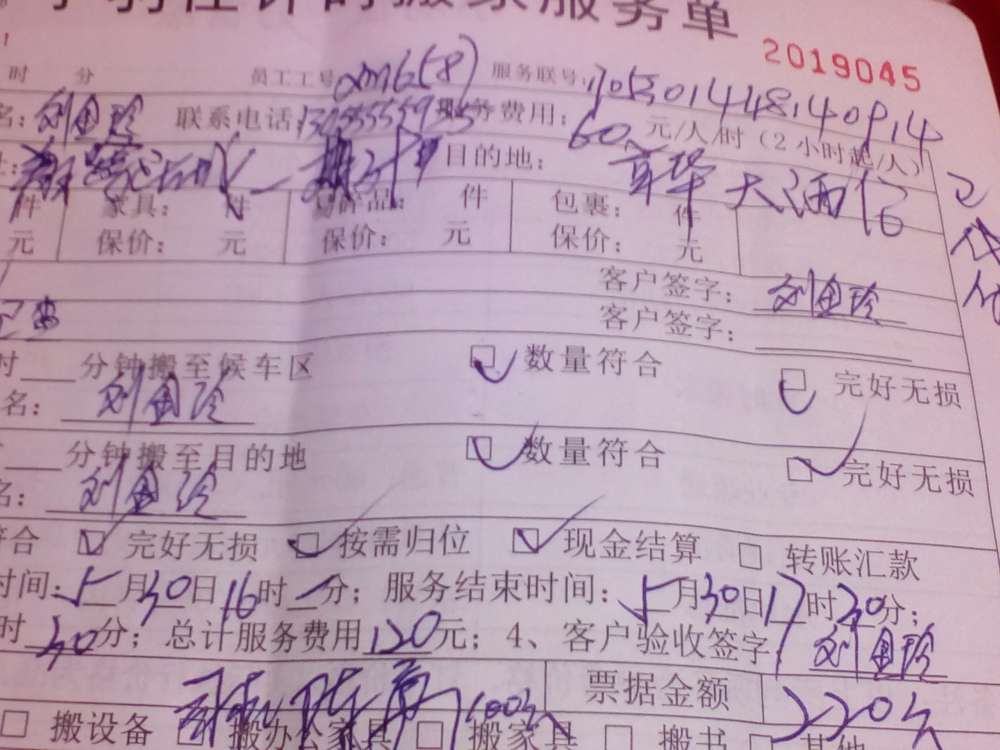 时计时搬家服务单
2019045
时 分 员工工号 服务联号: 1705301448140914
名: 刘金珍 联系电话: 服务费用: 60 元/人/时(2小时起/人)
目的地: 京华大酒店
件 家具: 件 易碎品: 件 包裹: 件
元 保价: 元 保价: 元 保价: 元
客户签字: 刘金珍
客户签字:
时 分钟搬至候车区 数量符合 完好无损
名: 刘金珍
分钟搬至目的地 数量符合 完好无损
名: 刘金珍
符合 完好无损 按需归位 现金结算 转账汇款
时间: 5月30日16时 分; 服务结束时间: 5月30日17时30分;
时30分; 总计服务费用120元; 4、客户验收签字 刘金珍
100元 票据金额 220元
搬设备 搬办公家具 搬家具 搬书 其他